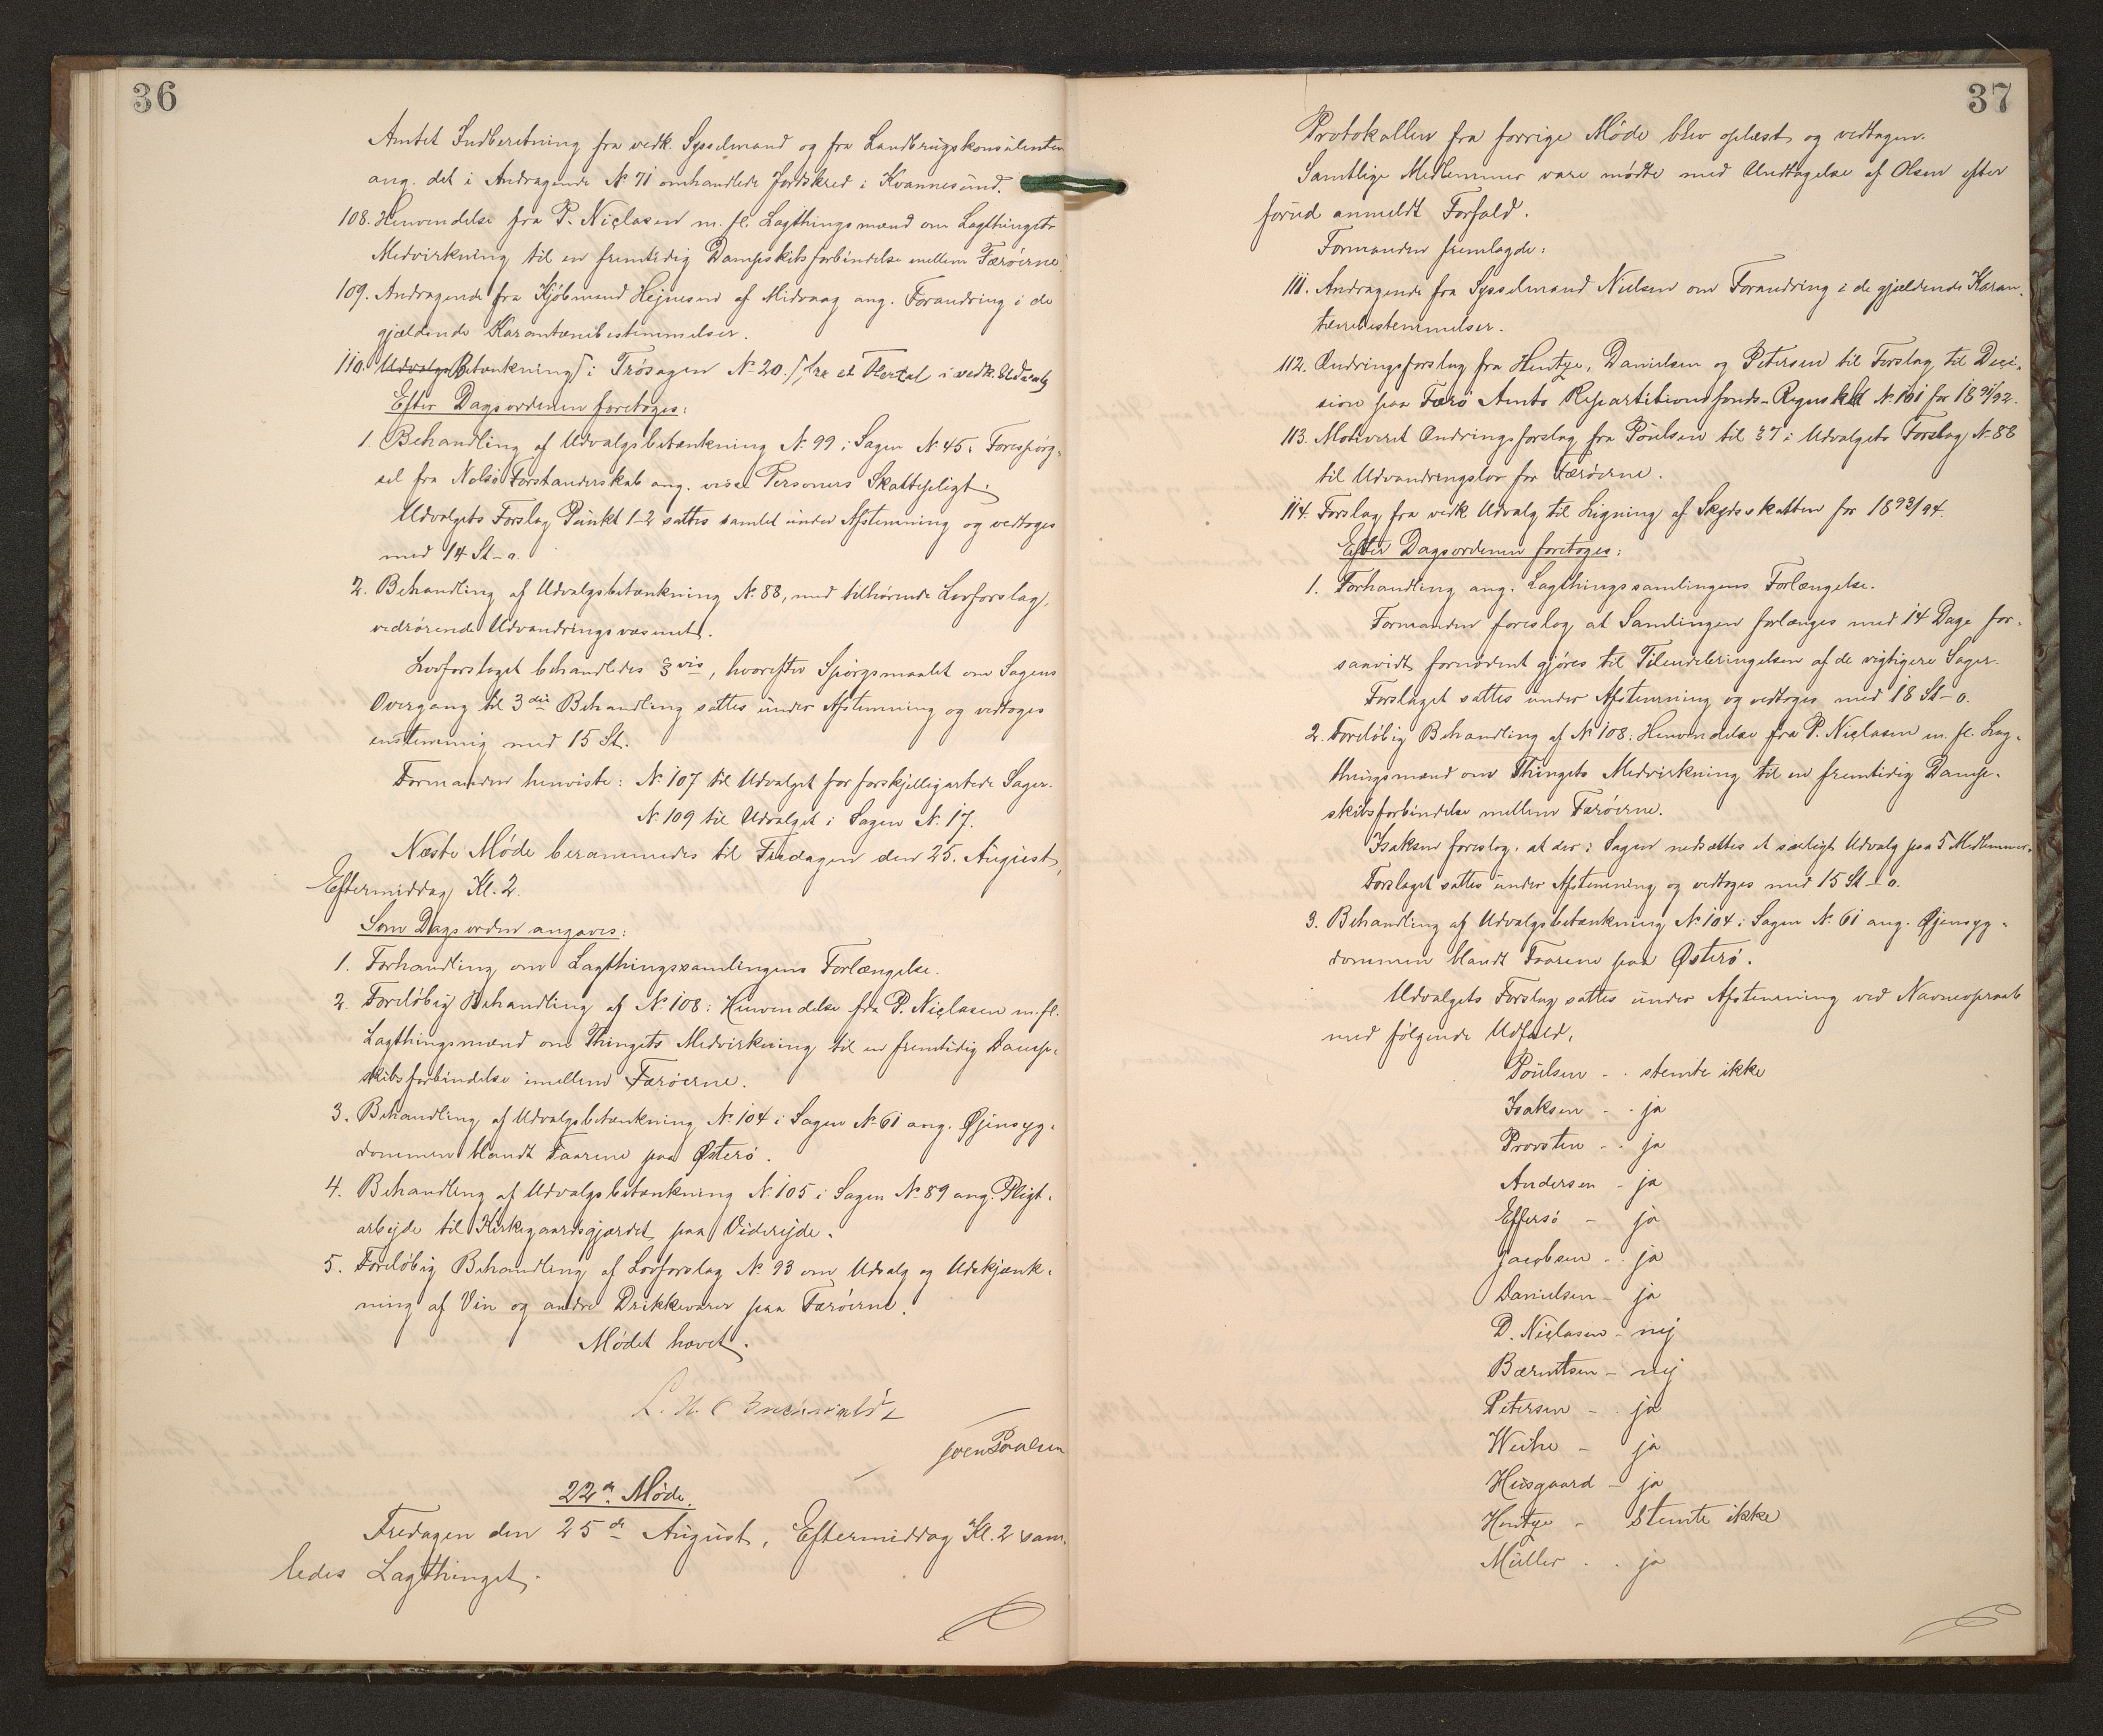 36
Amtet Indberetning fra vedk. Sysselmand og fra Landbrugskonsulenten
ang. det i Andragende No 71 omhandlede Jordskred i Kvannesund.
108. Henvendelse fra P. Niclasen m. fl. Lagthingsmænd om Lagthingets
Medvirkning til en fremtidig Dampskibsforbindelse mellem Færøerne.
109. Andragende fra Kjøbmand Hejnesen af Midvaag ang. Forandring i de
gjældende Karantænebestemmelser.
110. Udvalgs Betænkning i Frøsagen No 20. fra et Flertal i vedk. Udvalg
Efter Dagsordenen foretoges:
1. Behandling af Udvalgsbetænkning No 99 i Sagen No 45: Forespørg-
sel fra Nolsø Forstanderskab ang. visse Personers Skattepligt.
Udvalgets Forslag Punkt 1-2 sattes samlet under Afstemning og vedtoges
med 14 St-o.
2. Behandling af Udvalgsbetænkning No 88, med tilhørende Lovforslag,
vedrørende Udvandringsvæsenet.
Lovforslaget behandledes § vis, hvorefter Spørgsmaalet om Sagens
Overgang til 3die Behandling sattes under Afstemning og vedtoges
enstemmig med 15 St.
Formanden henviste: No 107 til Udvalget for forskjelligartede Sager.
No 109 til Udvalget i Sagen No 17.
Næste Møde berammedes til Fredagen den 25. August,
Eftermiddag Kl. 2.
Som Dagsorden angaves:
1. Forhandling om Lagthingssamlingens Forlængelse.
2. Foreløbig Behandling af No 108: Henvendelse fra P. Niclasen m. fl.
Lagthingsmænd om Thingets Medvirkning til en fremtidig Damp-
skibsforbindelse imellem Færøerne.
3. Behandling af Udvalgsbetænkning No 104 i Sagen No 61 ang. Øjensyg-
dommen blandt Faarene paa Østerø.
4. Behandling af Udvalgsbetænkning No 105 i Sagen No 89 ang. Pligt-
arbejde til Kirkegaardsgjærdet paa Viderejde.
5. Foreløbig Behandling af Lovforslag No 93 om Udsalg og Udskjænk-
ning af Vin og andre Drikkevarer paa Færøerne.
Mødet hævet.
Joen Poulsen
22de Møde.
Fredagen den 25de August, Eftermiddag Kl. 2 sam-
ledes Lagthinget.
37
Protokollen fra forrige Møde blev oplæst og vedtagen.
Samtlige Medlemmer vare mødte med Undtagelse af Olsen efter
forud anmeldt Forfald.
Formanden fremlagde:
111. Andragende fra Sysselmand Nielsen om Forandring i de gjældende Karan-
tænebestemmelser.
112. Ændringsforslag fra Hentze, Danielsen og Petersen til Forslag til Deci-
sion paa Færø Amts Repartitionsfonds-Regnskab No 101 for 1891/92.
113. Motiveret Ændringsforslag fra Poulsen til § 7 i Udvalgets Forslag No 88
til Udvandringslov for Færøerne.
114. Forslag fra vedk Udvalg til Ligning af Skydsskatten for 1893/94.
Efter Dagsordenen foretoges:
1. Forhandling ang. Lagthingssamlingens Forlængelse.
Formanden foreslog at Samlingen forlænges med 14 Dage for-
saavidt fornødent gjøres til Tilendebringelsen af de vigtigere Sager.
Forslaget sattes under Afstemning og vedtoges med 18 St-o.
2. Foreløbig Behandling af No 108: Henvendelse fra P. Niclasen m. fl. Lag-
thingsmænd om Thingets Medvirkning til en fremtidig Damp-
skibsforbindelse mellem Færøerne.
Isaksen foreslog, at der i Sagen nedsættes et særligt Udvalg paa 5 Medlemmer.
Forslaget sattes under Afstemning og vedtoges med 15 St-o.
3. Behandling af Udvalgsbetænkning No 104 i Sagen No 61 ang. Øjensyg-
dommen blandt Faarene paa Østerø.
Udvalgets Forslag sattes under Afstemning ved Navneopraab
med følgende Udfald:
Poulsen - stemte ikke
Isaksen - ja
Provsten - ja
Andersen - ja
Effersö - ja
Jacobsen - ja
Danielsen - ja
D. Niclasen - nej
Bærentsen - nej
Petersen - ja
Weihe - ja
Husgaard - ja
Hentze - stemte ikke
Müller - ja